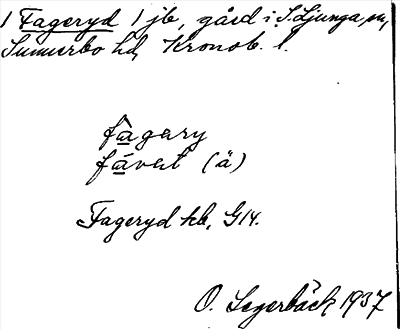 1 Fageryd 1 jb, gård i S. Ljunga sn,
Sunnerbo hd, Kronob. l.
fa̲gery
fa̲vert (ä)
Fageryd kb, G14.
O. Segerbäck 1937